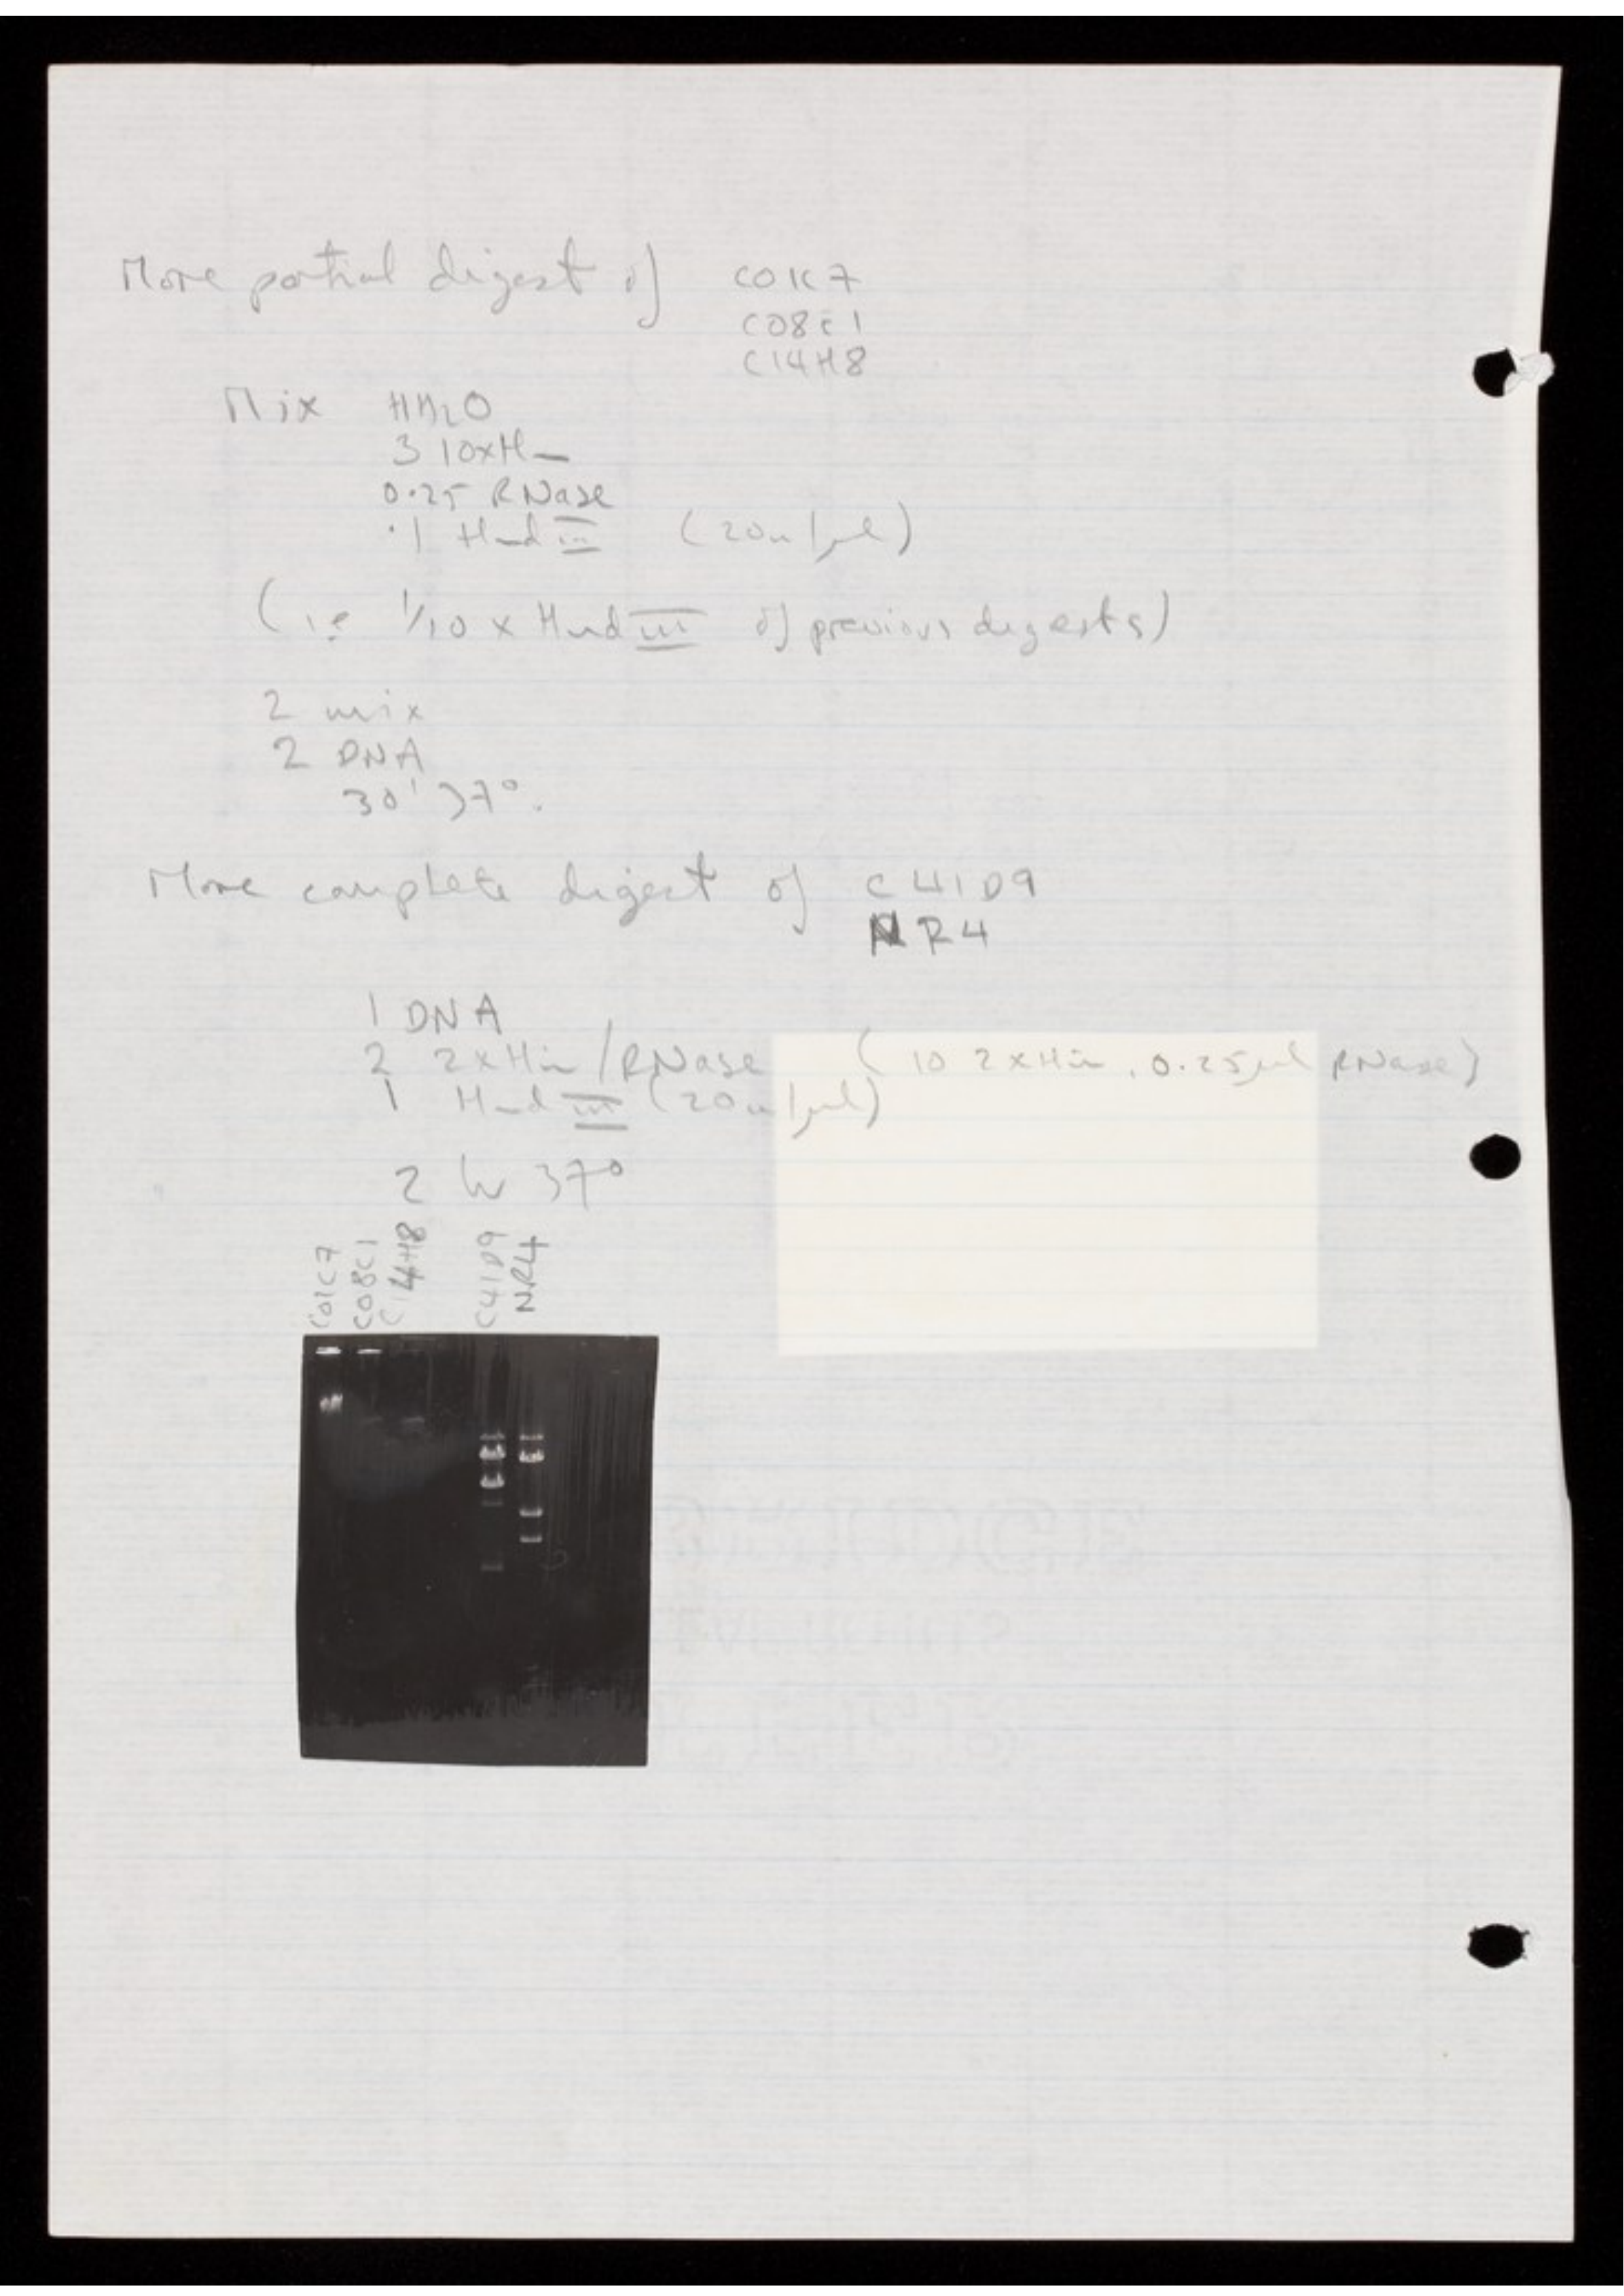 More partial digest of C01C7
C08C1
C14H8
Mix H2O
3 10xHin
0.25 RNase
.1 Hind III (20u/µl)
(ie 1/10 x Hind III of previous digests)
2 mix
2 DNA
30' 37°.
More complete digest of C41D9
NR4
1 DNA
2 2xHin/RNase (10 2xHin, 0.25µl RNase)
1 Hind III (20u/µl)
2 hr 37°
C01C7
C08C1
C14H8
C41D9
NR4